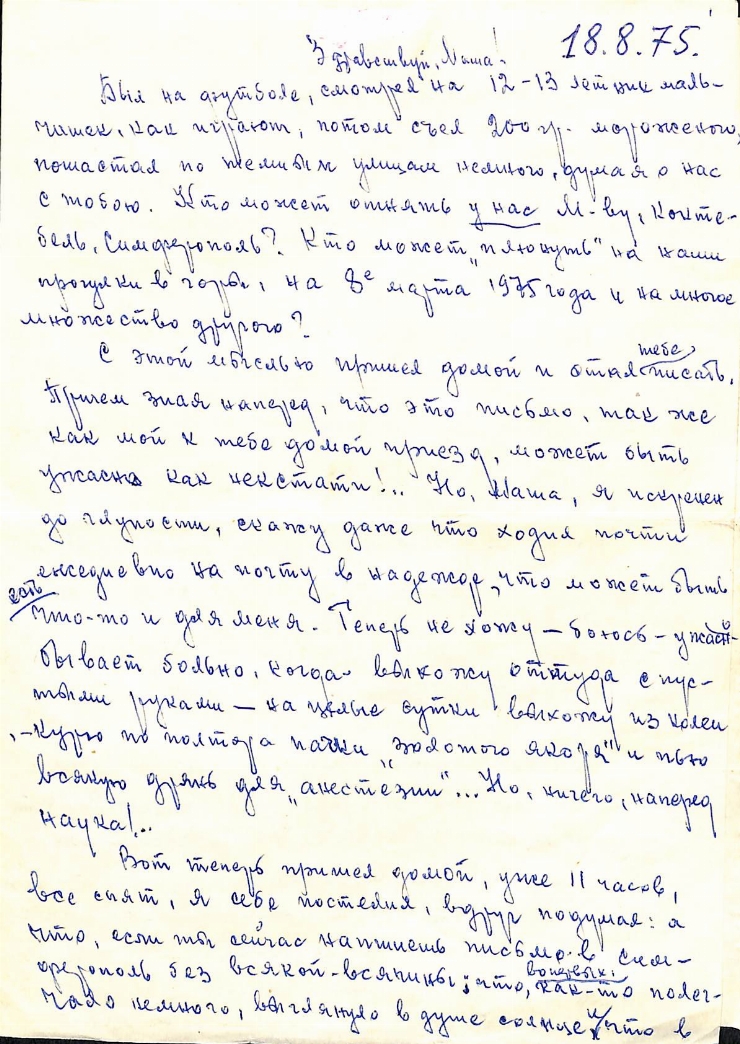 18.8.75.
Здравствуй, Маша!
Был на футболе, смотрел на 12-13 летних маль-
чишек, как играют, потом съел 200 гр. мороженого,
пошастал по темным улицам немного, думая о нас
с тобою. Кто может отнять у нас М-ву, Кокте-
бель, Симферополь? Кто может „плюнуть" на наши
прогулки в горы, на 8е марта 1975 года и на многое
множество другого?
С этой мыслью пришел домой и стал тебе писать.
Причем зная наперед, что это письмо, так же
как мой к тебе домой приезд, может быть
ужасно как некстати!.. Но, Маша, я искренен
до глупости, скажу даже что ходил почти
ежедневно на почту в надежде, что может быть
есть что-то и для меня. Теперь не хожу – боюсь – ужасно
бывает больно, когда выхожу оттуда с пус-
тыми руками – на целые сутки выхожу из колеи
, – курю по полтора пачки „золотого якоря" и пью
всякую дрянь для „анестезии"... Но, ничего, наперед
наука!..
Вот теперь пришел домой, уже 11 часов,
все спят, я себе постелил, вдруг подумал: а
что, если ты сейчас напишешь письмо в Сим-
ферополь без всякой-всячины; что, во первых: как-то полег-
чало немного, выглянуло в душе солнце и что в